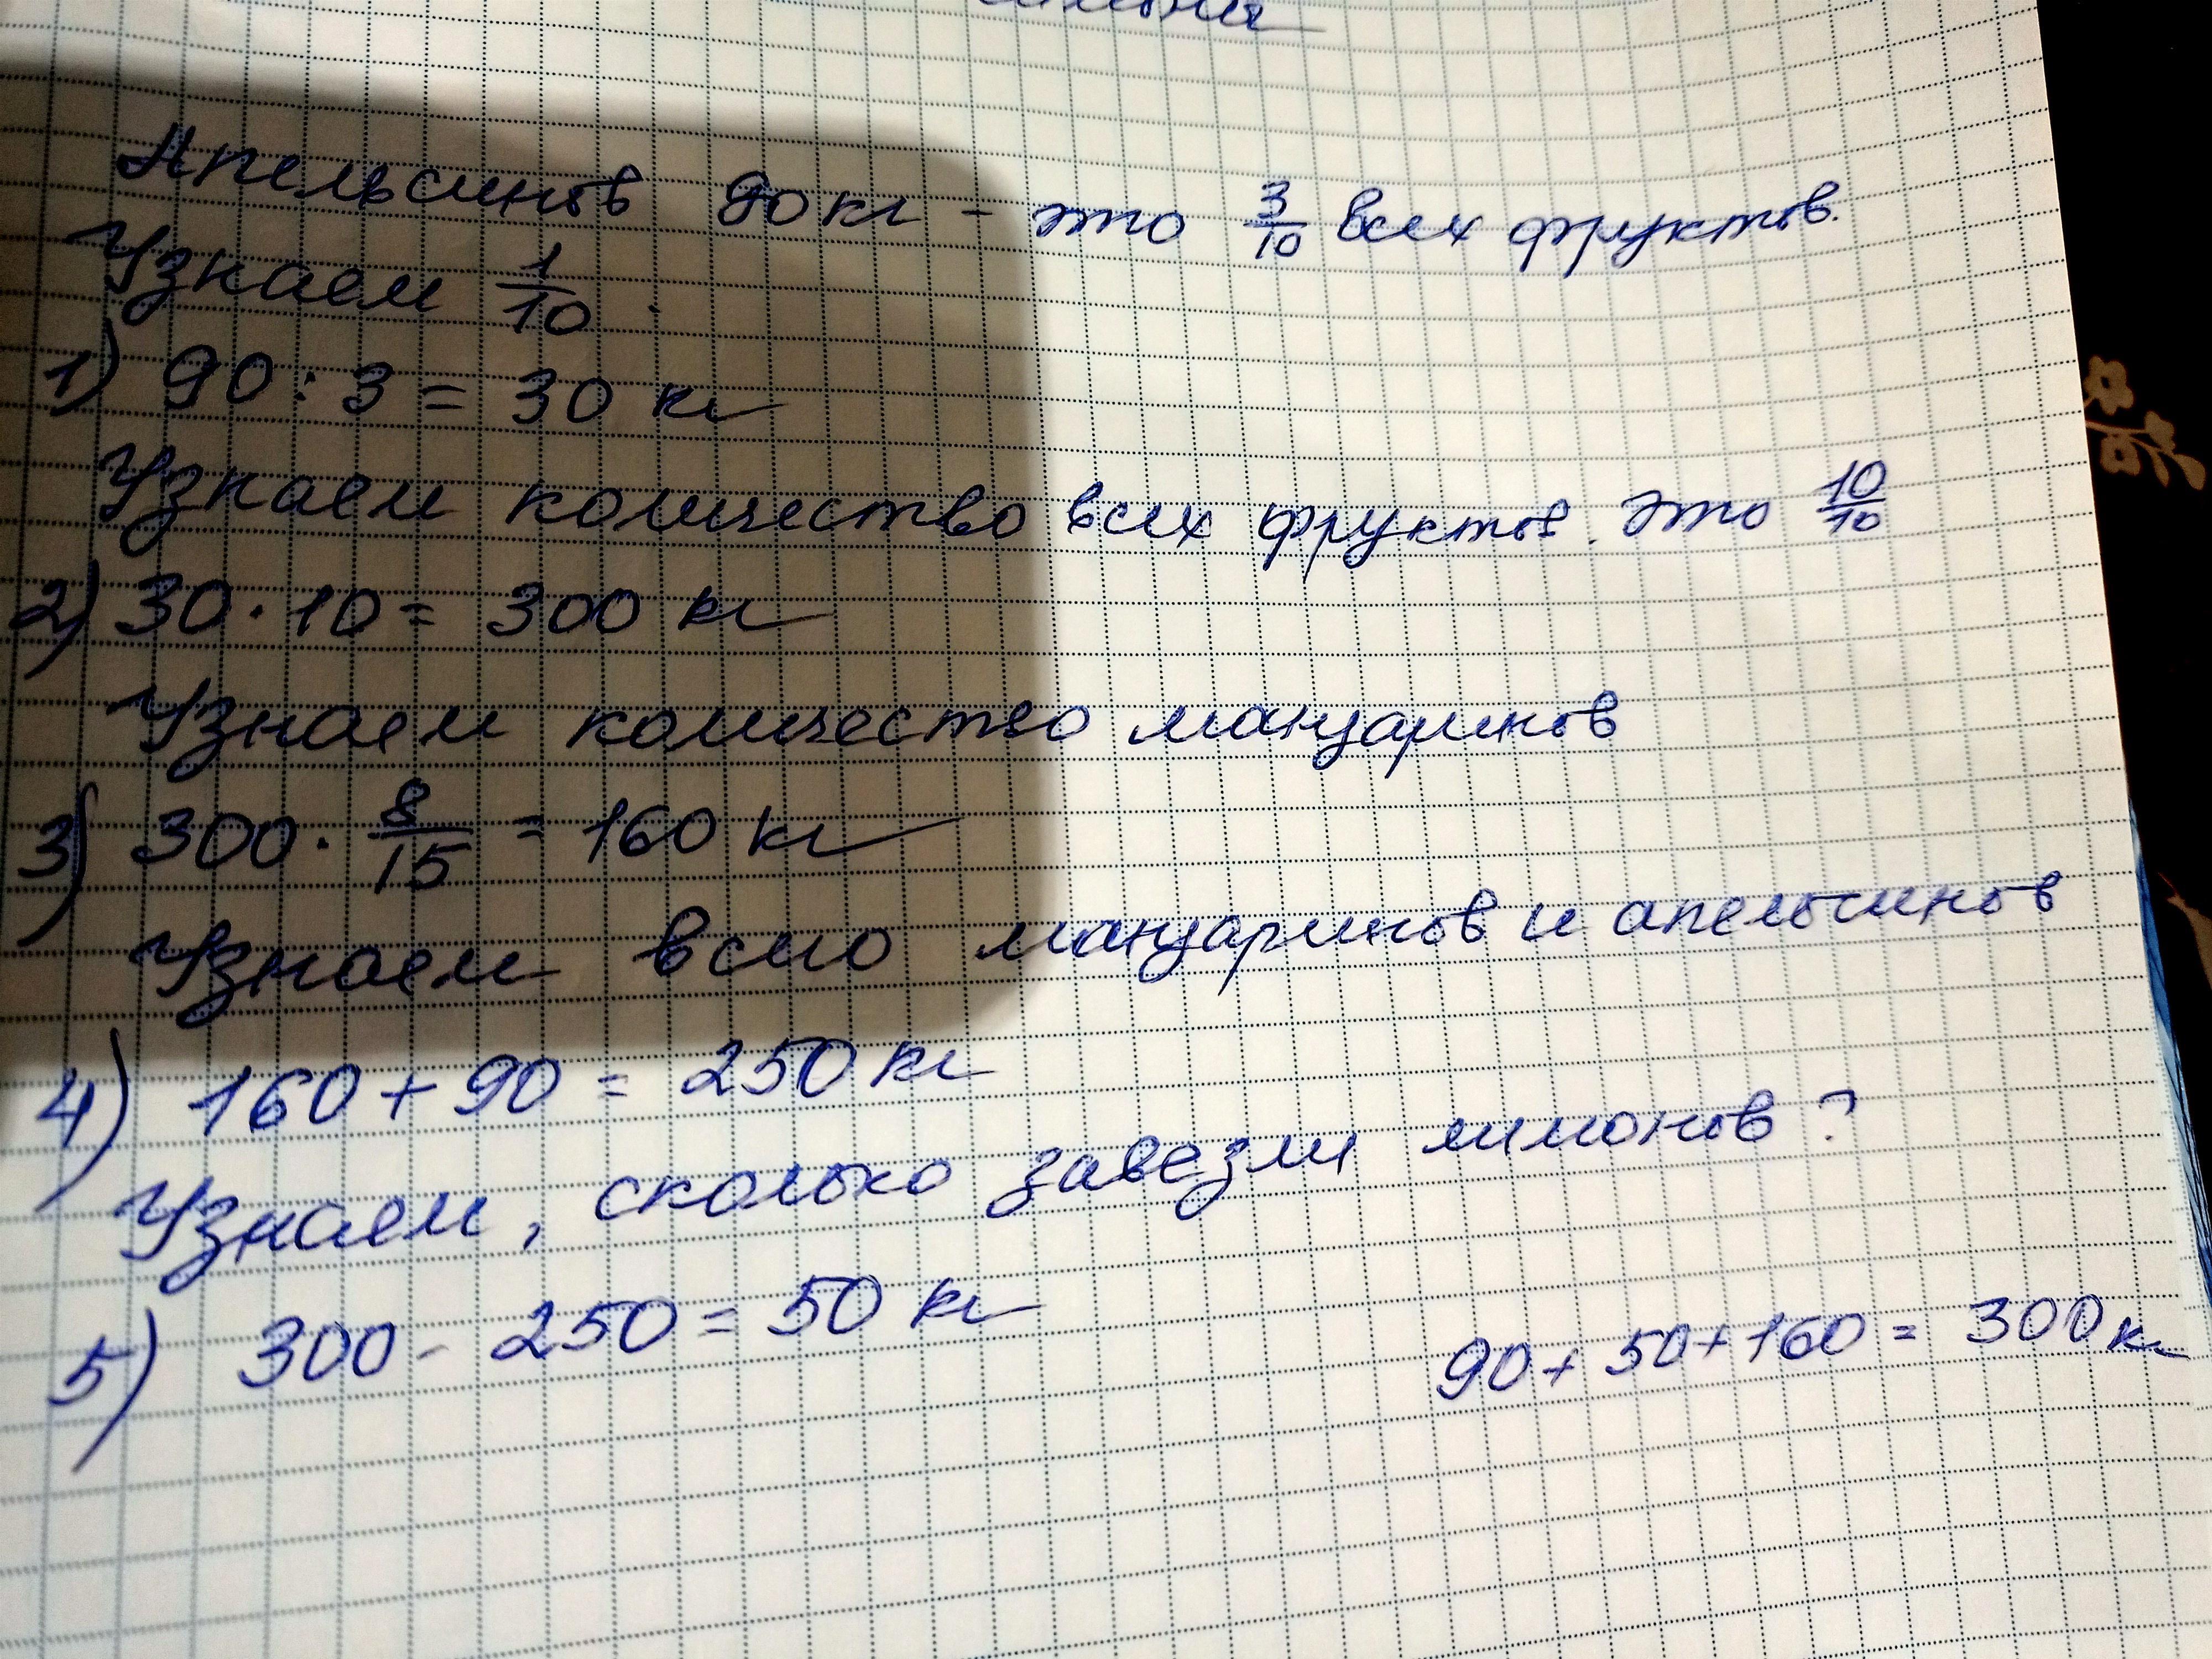 Апельсинов 90 кг - это 3/10 всех фруктов.
Узнаем 1/10.
1) 90 : 3 = 30 кг
Узнаем количество всех фруктов. Это 10/10
2) 30 · 10 = 300 кг
Узнаем количество мандаринов
3) 300 · 8/15 = 160 кг
Узнаем всего мандаринов и апельсинов
4) 160 + 90 = 250 кг
Узнаем, сколько завезли лимонов?
5) 300 - 250 = 50 кг
90 + 50 + 160 = 300 кг